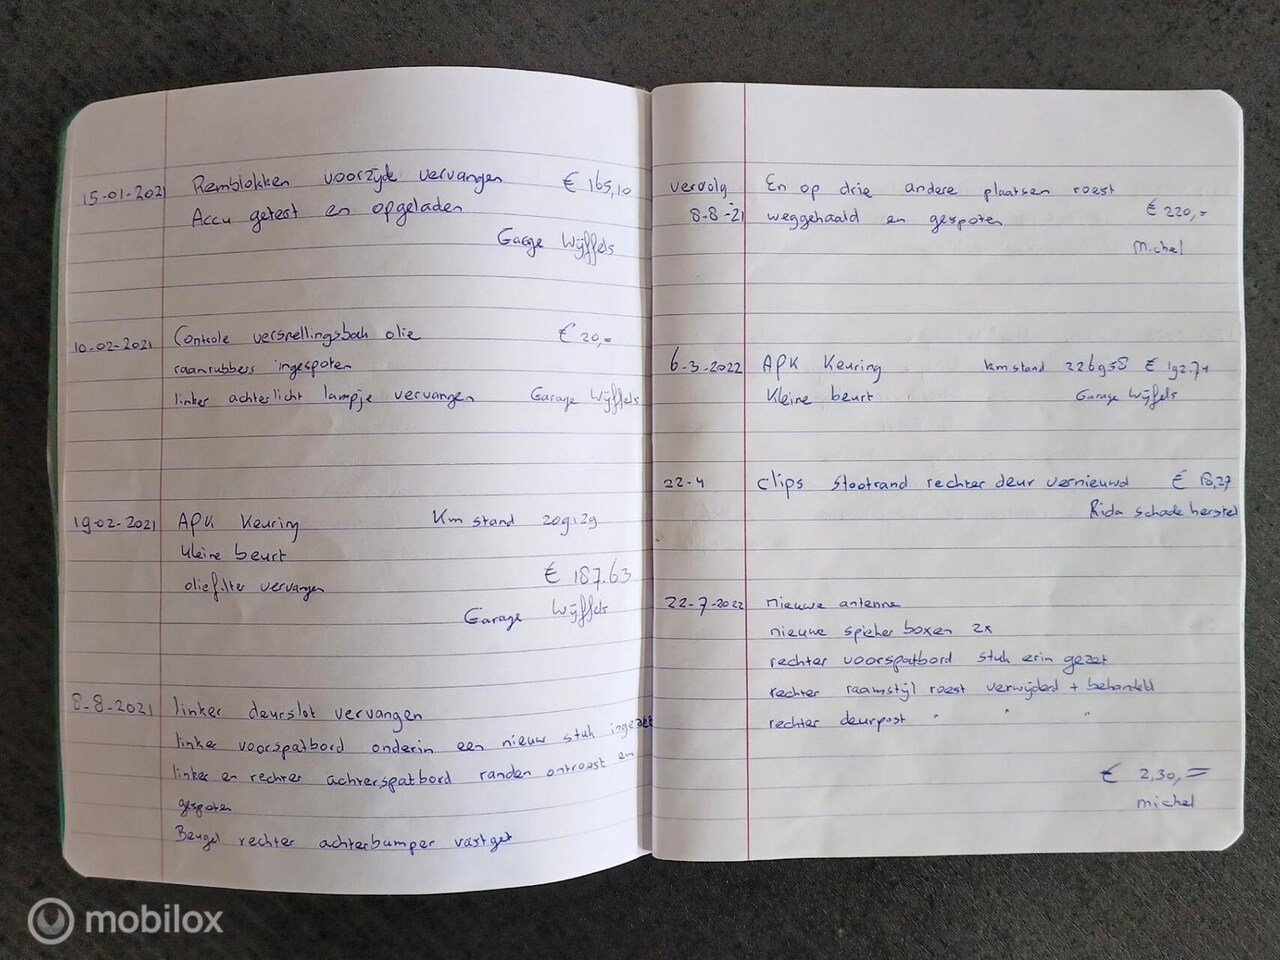 15-01-2021 Remblokken voorzijde vervangen € 165,10
Accu getest en opgeladen
Garage Wijffels
10-02-2021 Controle versnellingsbak olie € 20,=
raamrubbers ingespoten
linker achterlicht lampje vervangen Garage Wijffels
19-02-2021 APK Keuring Km stand 209129
kleine beurt
oliefilter vervangen € 187.63
Garage Wijffels
8-8-2021 linker deurslot vervangen
linker voorspatbord onderin een nieuw stuk ingezet
linker en rechter achterspatbord randen ontroest en
gespoten
Beugel rechter achterbumper vastget
vervolg En op drie andere plaatsen roest
8-8-21 weggehaald en gespoten € 220,=
Michel
6-3-2022 APK Keuring km stand 226958 € 192.74
Kleine beurt Garage Wijfels
22-4 clips stootrand rechter deur vernieuwd € 18,27
Rida schade herstel
22-7-2022 nieuwe antenne
nieuwe spieker boxen 2x
rechter voorspatbord stuk erin gezet
rechter raamstijl roest verwijderd + behandeld
rechter deurpost " " "
€ 2,30,=
michel
mobilox